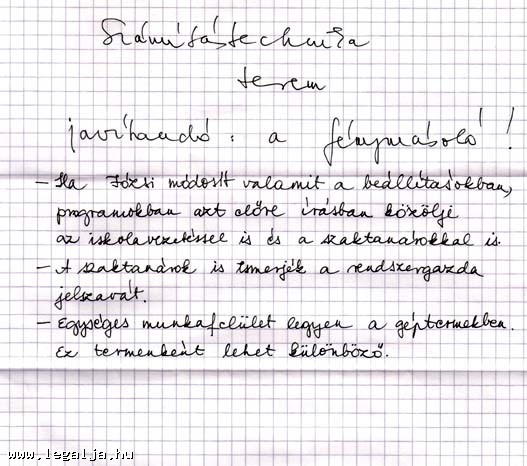 Számítástechnika
terem
javítandó: a fénymásoló!
- Ha Józsi módosít valamit a beállításokban,
programokban azt előre írásban közölje
az iskolavezetéssel is és a szaktanárokkal is.
- A szaktanárok is ismerjék a rendszergazda
jelszavát.
- Egységes munkafelület legyen a géptermekben.
Ez termenként lehet különböző.
www.legalja.hu